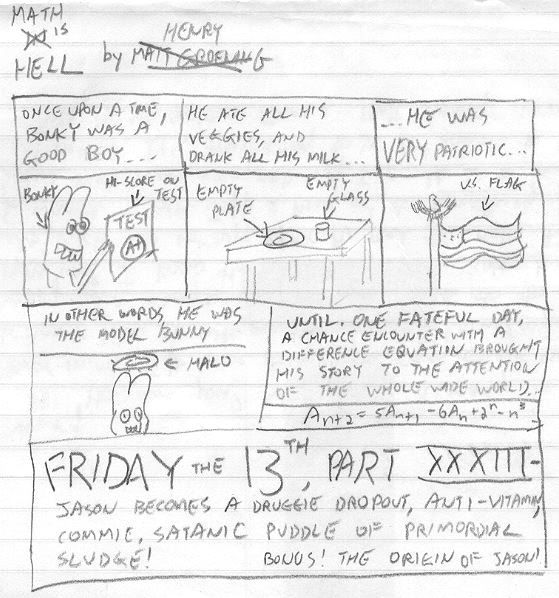 MATH
IS
HELL
HENRY
by MATT GROENING
ONCE UPON A TIME,
BONKY WAS A
GOOD BOY....
HE ATE ALL HIS
VEGGIES, AND
DRANK ALL HIS MILK...
... HE WAS
VERY PATRIOTIC...
BONKY
HI-SCORE ON
TEST
TEST
A+
EMPTY
PLATE
EMPTY
GLASS
U.S. FLAG
IN OTHER WORDS, HE WAS
THE MODEL BUNNY
HALO
UNTIL, ONE FATEFUL DAY,
A CHANCE ENCOUNTER WITH A
DIFFERENCE EQUATION BROUGHT
HIS STORY TO THE ATTENTION
OF THE WHOLE WIDE WORLD...
Aₙ₊₂ = 5Aₙ₊₁ - 6Aₙ + 2ⁿ - n³
FRIDAY THE 13TH, PART XXXIII-
JASON BECOMES A DRUGGIE DROPOUT, ANTI-VITAMIN,
COMMIE, SATANIC PUDDLE OF PRIMORDIAL
SLUDGE! BONUS! THE ORIGIN OF JASON!